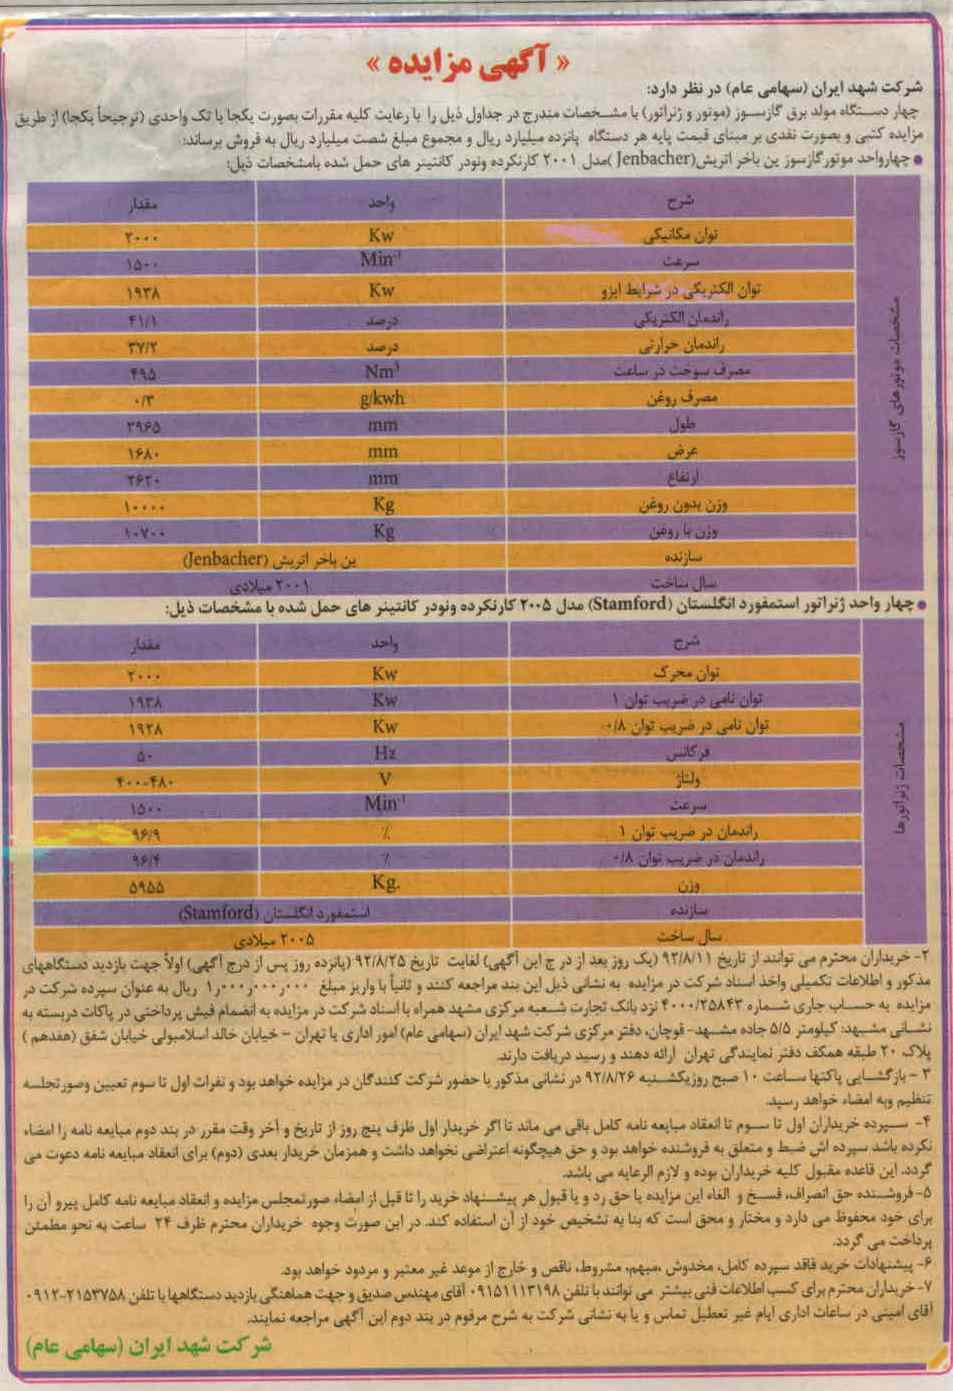 « آگهی مزایده »
شرکت شهد ایران (سهامی عام) در نظر دارد:
چهار دستگاه مولد برق گازسوز (موتور و ژنراتور) با مشخصات مندرج در جداول ذیل را با رعایت کلیه مقررات بصورت یکجا یا تک واحدی (ترجیحاً یکجا) از طریق
مزایده کتبی و بصورت نقدی بر مبنای قیمت پایه هر دستگاه پانزده میلیارد ریال و مجموع مبلغ شصت میلیارد ریال به فروش برساند:
● چهارواحد موتورگازسوز ین باخر اتریش(Jenbacher )مدل ۲۰۰۱ کارنکرده ونودر کانتینر های حمل شده بامشخصات ذیل:
مشخصات موتورهای گازسوز
شرح واحد مقدار
توان مکانیکی Kw ۲۰۰۰
سرعت Min⁻¹ ۱۵۰۰
توان الکتریکی در شرایط ایزو Kw ۱۹۳۸
راندمان الکتریکی درصد ۴۱/۱
راندمان حرارتی درصد ۳۷/۲
مصرف سوخت در ساعت Nm³ ۴۹۵
مصرف روغن g/kwh ۰/۳
طول mm
عرض mm ۱۶۸۰
ارتفاع mm
وزن بدون روغن Kg ۱۰۰۰۰
وزن با روغن Kg ۱۰۷۰۰
سازنده ین باخر اتریش (Jenbacher)
سال ساخت ۲۰۰۱ میلادی
● چهار واحد ژنراتور استمفورد انگلستان (Stamford) مدل ۲۰۰۵ کارنکرده ونودر کانتینر های حمل شده با مشخصات ذیل:
مشخصات ژنراتورها
شرح واحد مقدار
توان محرک Kw ۲۰۰۰
توان نامی در ضریب توان ۱ Kw ۱۹۳۸
توان نامی در ضریب توان ۰/۸ Kw ۱۹۲۸
فرکانس Hz ۵۰
ولتاژ V ۴۰۰-۴۸۰
سرعت Min⁻¹ ۱۵۰۰
راندمان در ضریب توان ۱ ٪ ۹۶/۹
راندمان در ضریب توان ۰/۸ ٪ ۹۶/۴
وزن Kg. ۵۹۵۵
سازنده استمفورد انگلستان (Stamford)
سال ساخت ۲۰۰۵ میلادی
۲- خریداران محترم می توانند از تاریخ ۹۲/۸/۱۱ (یک روز بعد از درج این آگهی) لغایت تاریخ ۹۲/۸/۲۵ (پانزده روز پس از درج آگهی) اولاً جهت بازدید دستگاههای
مذکور و اطلاعات تکمیلی واخذ اسناد شرکت در مزایده به نشانی ذیل این بند مراجعه کنند و ثانیاً با واریز مبلغ ۱٫۰۰۰٫۰۰۰٫۰۰۰ ریال به عنوان سپرده شرکت در
مزایده به حساب جاری شماره ۴۰۰۰/۲۵۸۴۳ نزد بانک تجارت شعبه مرکزی مشهد همراه با اسناد شرکت در مزایده به انضمام فیش پرداختی در پاکات دربسته به
نشانی مشهد: کیلومتر ۵/۵ جاده مشهد-قوچان، دفتر مرکزی شرکت شهد ایران (سهامی عام) امور اداری یا تهران - خیابان خالد اسلامبولی خیابان شفق (هفدهم )
پلاک ۲۰ طبقه همکف دفتر نمایندگی تهران ارائه دهند و رسید دریافت دارند.
۳ - بازگشایی پاکتها ساعت ۱۰ صبح روزیکشنبه ۹۲/۸/۲۶ در نشانی مذکور با حضور شرکت کنندگان در مزایده خواهد بود و نفرات اول تا سوم تعیین وصورتجلسه
تنظیم وبه امضاء خواهد رسید.
۴- سپرده خریداران اول تا سوم تا انعقاد مبایعه نامه کامل باقی می ماند تا اگر خریدار اول ظرف پنج روز از تاریخ و آخر وقت مقرر در بند دوم مبایعه نامه را امضاء
نکرده باشد سپرده اش ضبط و متعلق به فروشنده خواهد بود و حق هیچگونه اعتراضی نخواهد داشت و همزمان خریدار بعدی (دوم) برای انعقاد مبایعه نامه دعوت می
گردد. این قاعده مقبول کلیه خریداران بوده و لازم الرعایه می باشد.
۵- فروشنده حق انصراف، فسخ و الغاء این مزایده یا حق رد و یا قبول هر پیشنهاد خرید را تا قبل از امضاء صورتمجلس مزایده و انعقاد مبایعه نامه کامل پیرو آن را
برای خود محفوظ می دارد و مختار و محق است که بنا به تشخیص خود از آن استفاده کند. در این صورت وجوه خریداران محترم ظرف ۲۴ ساعت به نحو مطمئن
پرداخت می گردد.
۶- پیشنهادات خرید فاقد سپرده کامل، مخدوش ،مبهم، مشروط، ناقص و خارج از موعد غیر معتبر و مردود خواهد بود.
۷- خریداران محترم برای کسب اطلاعات فنی بیشتر می توانند با تلفن ۰۹۱۵۱۱۱۳۱۹۸ آقای مهندس صدیق و جهت هماهنگی بازدید دستگاهها با تلفن ۰۹۱۲-۲۱۵۳۷۵۸
آقای امینی در ساعات اداری ایام غیر تعطیل تماس و یا به نشانی شرکت به شرح مرقوم در بند دوم این آگهی مراجعه نمایند.
شرکت شهد ایران (سهامی عام)